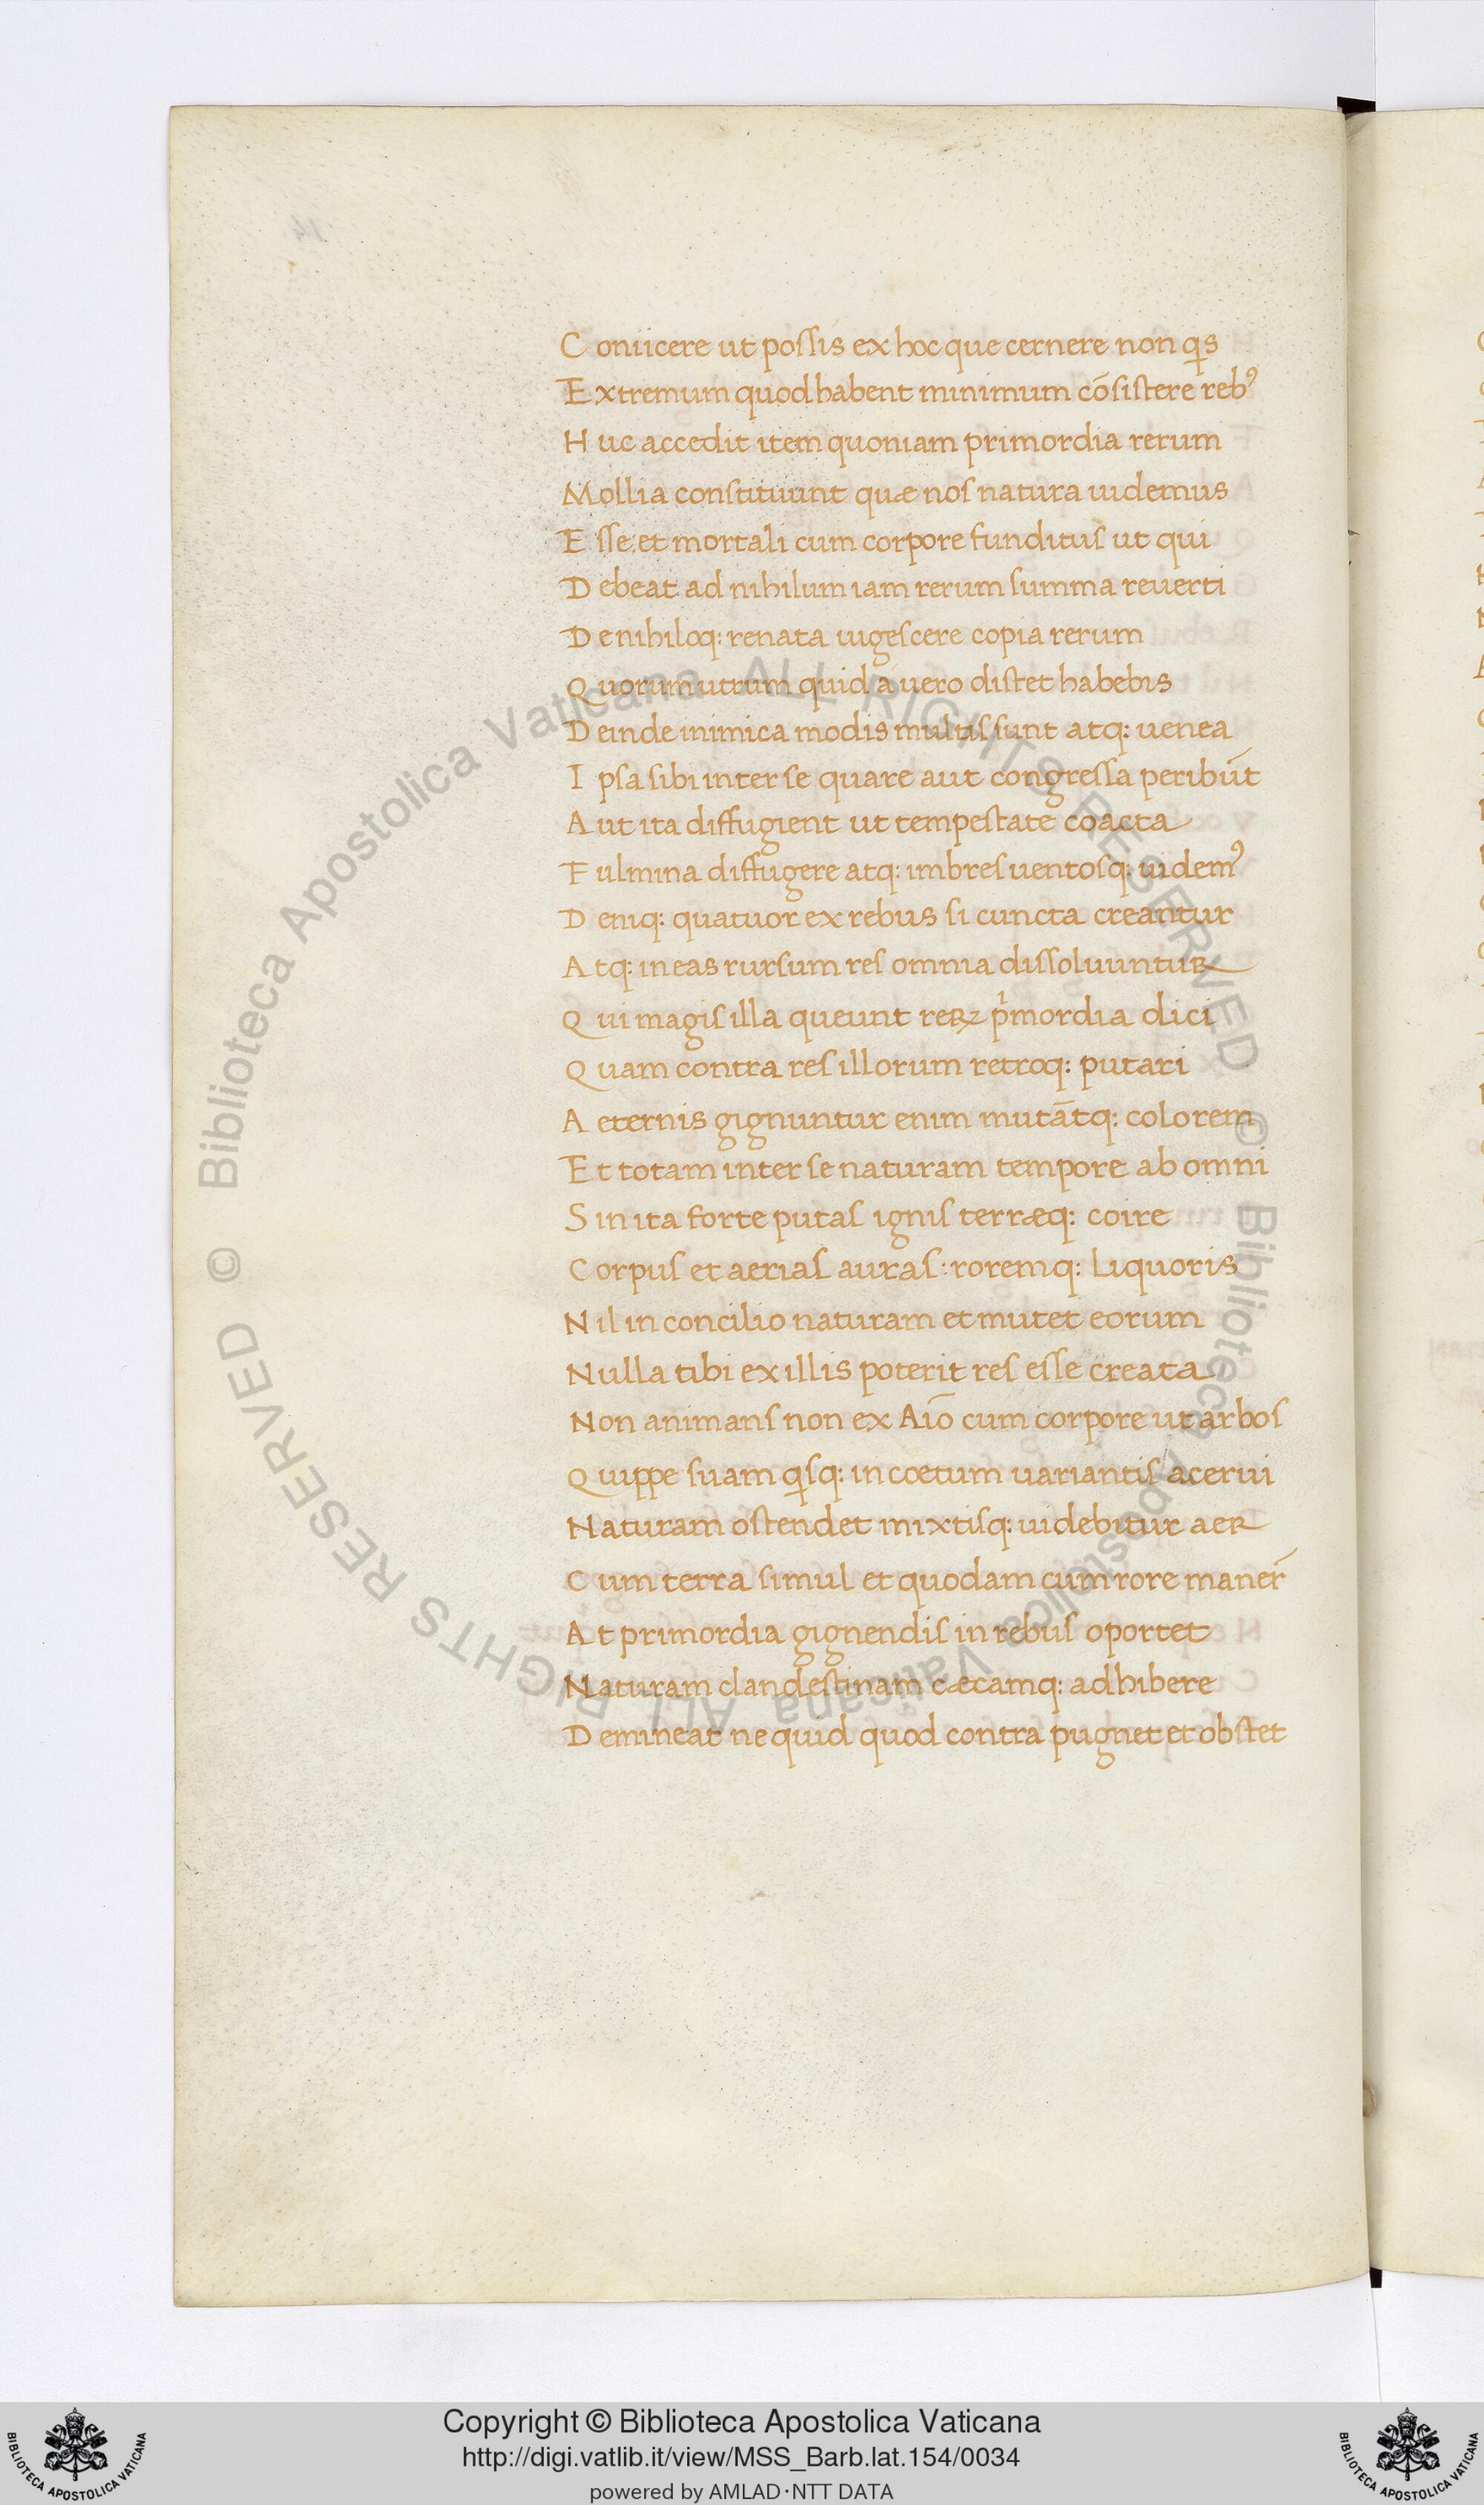 Coniicere ut possis ex hoc que cernere non qͥs
Extremum quod habent minimum cōsistere rebꝰ
Huc accedit item quoniam primordia rerum
Mollia constituunt quæ nos natura uidemus
Esse et mortali cum corpore funditus ut qui
Debeat ad nihilum iam rerum summa reuerti
De nihiloq: renata uigescere copia rerum
Quorum utrum quid a uero distet habebis
Deinde inimica modis multis sunt atq: uenea
Ipsa sibi inter se quare aut congressa peribūt
Aut ita diffugient ut tempestate coacta
Fulmina diffugere atq: imbres uentosq: uidemꝰ
Deniq: quatuor ex rebus si cuncta creantur
Atq: in eas rursum res omnia dissoluuntur
Qui magis illa queunt reꝝ pͥmordia dici
Quam contra res illorum retroq: putari
Aeternis gignuntur enim mutātq: colorem
Et totam inter se naturam tempore ab omni
Sin ita forte putas ignis terræq: coire
Corpus et aerias auras: roremq: liquoris
Nil in concilio naturam et mutet eorum
Nulla tibi ex illis poterit res esse creata
Non animans non ex Aīo cum corpore ut arbos
Quippe suam qͥsq: in coetum uariantis acerui
Naturam ostendet mixtisq: uidebitur aer
Cum terra simul et quodam cum rore maner̄
At primordia gignendis in rebus oportet
Naturam clandestinam cæcamq: adhibere
Demineat ne quid quod contra pugnet et obstet
© Biblioteca Apostolica Vaticana ALL RIGHTS RESERVED
© Biblioteca Apostolica Vaticana ALL RIGHTS RESERVED
Copyright © Biblioteca Apostolica Vaticana
http://digi.vatlib.it/view/MSS_Barb.lat.154/0034
powered by AMLAD·NTT DATA
BIBLIOTECA APOSTOLICA VATICANA
BIBLIOTECA APOSTOLICA VATICANA